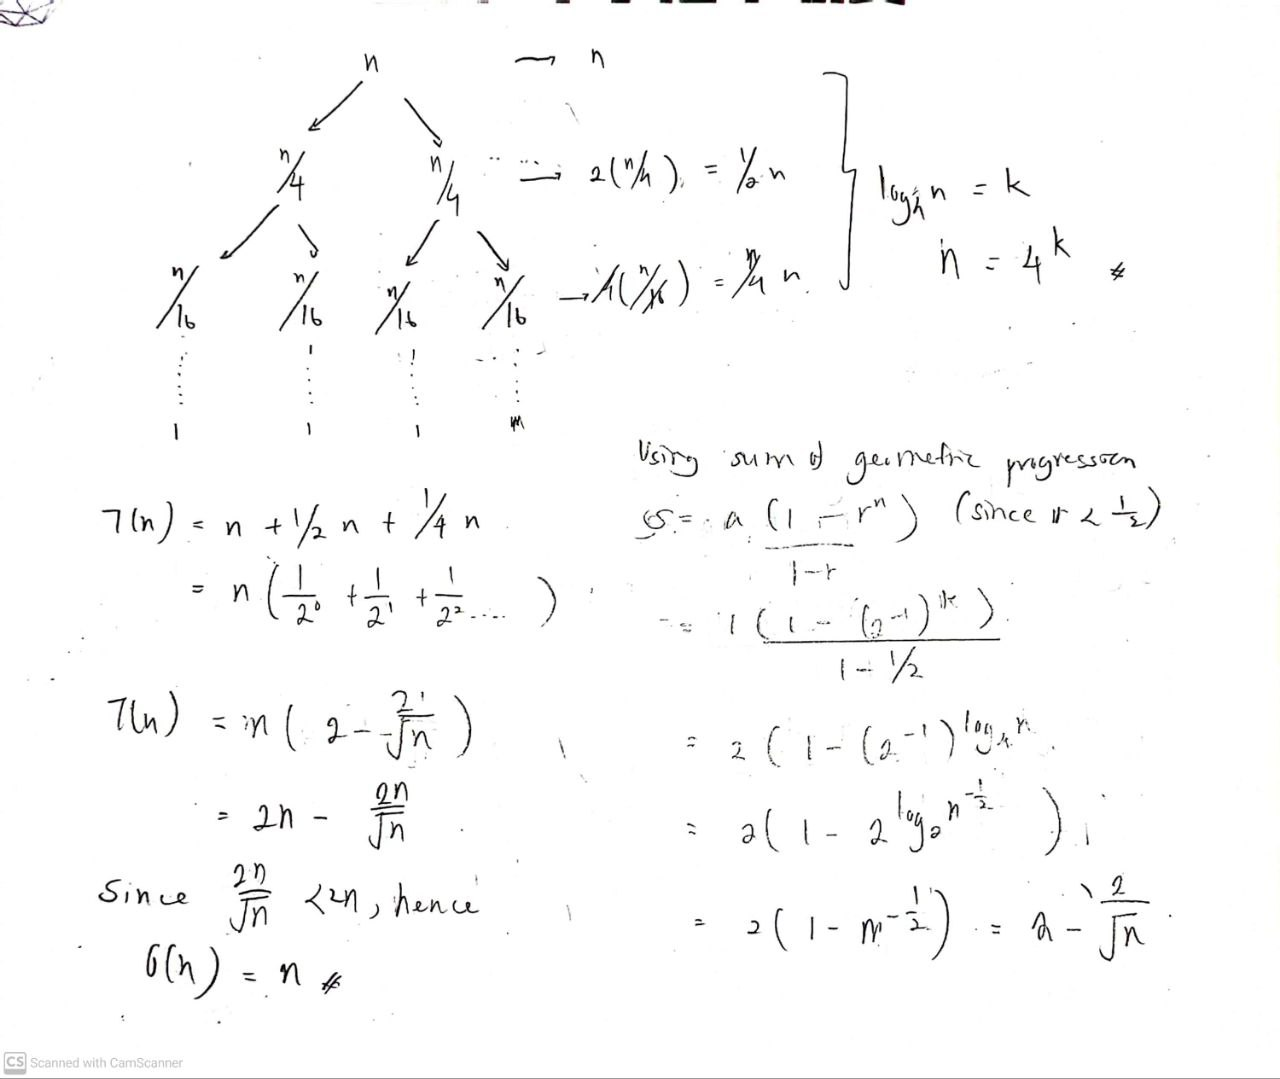 n → n
n/4 n/4 → 2(n/4) = 1/2 n
n/16 n/16 n/16 n/16 → 4(n/16) = 1/4 n
log₄n = k
n = 4^k #
1 1 1
T(n) = n + 1/2 n + 1/4 n
= n (1/2⁰ + 1/2¹ + 1/2² ....)
T(n) = n (2 - 2/√n)
= 2n - 2n/√n
Since 2n/√n < 2n, hence
θ(n) = n #
Using sum of geometric progression
S = a (1 - rⁿ) / 1-r (since r < 1/2)
= 1 (1 - (2⁻¹)^k) / 1 - 1/2
= 2 (1 - (2⁻¹)^log₄n
= 2 (1 - 2^log₂n^-1/2)
= 2 (1 - n^-1/2) = 2 - 2/√n
CS Scanned with CamScanner